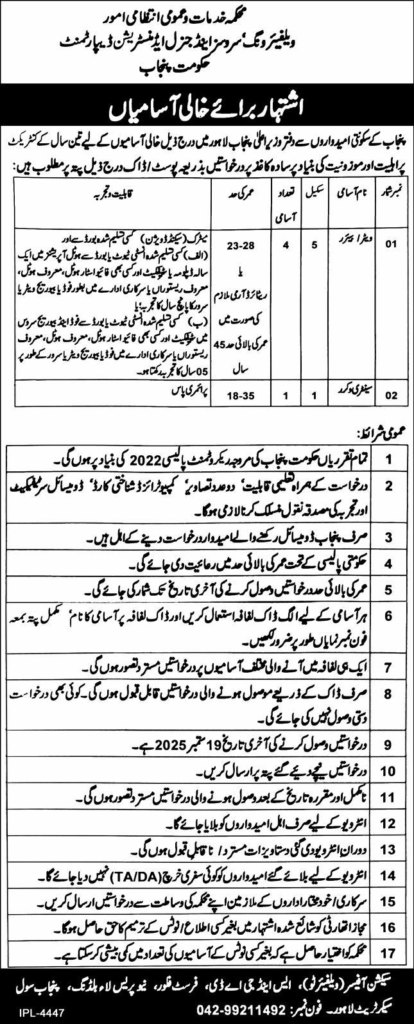 محکمہ خدمات و عمومی انتظامی امور
ویلفیئر ونگ، سروسز اینڈ جنرل ایڈمنسٹریشن ڈیپارٹمنٹ
حکومت پنجاب
اشتہار برائے خالی آسامیاں
پنجاب کے سکونتی امیدواروں سے دفتر وزیراعلیٰ پنجاب لاہور میں درج ذیل خالی آسامیوں کے لیے تین سال کے کنٹریکٹ
پر اہلیت اور موزونیت کی بنیاد پر سادہ کاغذ پر درخواستیں بذریعہ پوسٹ/ڈاک درج ذیل پتہ پر مطلوب ہیں:
نمبر شمار نام آسامی سکیل تعداد آسامی عمر کی حد قابلیت و تجربہ
01 ویٹر/بیئرر 5 4 23-28
یا
ریٹائرڈ آرمی ملازم
کی صورت میں
عمر کی بالائی حد 45
سال
میٹرک (سیکنڈ ڈویژن) کسی تسلیم شدہ بورڈ سے اور
(الف) کسی تسلیم شدہ انسٹی ٹیوٹ یا بورڈ سے ہوٹل آپریشنز میں ایک
سالہ ڈپلومہ یا سرٹیفکیٹ اور کسی بھی فائیو اسٹار ہوٹل، معروف ہوٹل، معروف
ریستوراں یا سرکاری ادارے میں بطور فوڈ یا بیوریج ویٹر یا
سرور کا پانچ سال کا تجربہ؛ یا
(ب) کسی تسلیم شدہ انسٹی ٹیوٹ یا بورڈ سے فوڈ اینڈ بیوریج سروس
میں سرٹیفکیٹ اور کسی بھی فائیو اسٹار ہوٹل، معروف ہوٹل، معروف
ریستوراں یا سرکاری ادارے میں فوڈ یا بیوریج ویٹر یا سرور کے طور پر
05 سال کا تجربہ رکھتا ہو۔
02 سینٹری ورکر 1 1 18-35 پرائمری پاس
عمومی شرائط:
1 تمام تقرریاں حکومت پنجاب کی مروجہ ریکروٹمنٹ پالیسی 2022 کی بنیاد پر ہوں گی۔
2 درخواست کے ہمراہ تعلیمی قابلیت، دو عدد تصاویر، کمپیوٹرائزڈ شناختی کارڈ، ڈومیسائل سرٹیفکیٹ
اور تجربہ کی مصدقہ نقول منسلک کرنا لازمی ہوگا۔
3 صرف پنجاب ڈومیسائل رکھنے والے امیدوار درخواست دینے کے اہل ہیں۔
4 حکومتی پالیسی کے تحت عمر کی بالائی حد میں رعایت دی جائے گی۔
5 عمر کی بالائی حد درخواستیں وصول کرنے کی آخری تاریخ تک شمار کی جائے گی۔
6 ہر آسامی کے لیے الگ ڈاک لفافہ استعمال کریں اور ڈاک لفافہ پر آسامی کا نام، مکمل پتہ بمعہ
فون نمبر نمایاں طور پر ضرور لکھیں۔
7 ایک ہی لفافہ میں آنے والی مختلف آسامیوں پر درخواستیں مسترد تصور ہوں گی۔
8 صرف ڈاک کے ذریعے موصول ہونے والی درخواستیں قابل قبول ہوں گی۔ کوئی بھی درخواست
دستی وصول نہیں کی جائے گی۔
9 درخواستیں وصول کرنے کی آخری تاریخ 19 ستمبر 2025 ہے۔
10 درخواستیں نیچے دیئے گئے پتہ پر ارسال کریں۔
11 نامکمل اور مقررہ تاریخ کے بعد وصول ہونے والی درخواستیں مسترد تصور ہوں گی۔
12 انٹرویو کے لیے صرف اہل امیدواروں کو بلایا جائے گا۔
13 دوران انٹرویو دی گئی دستاویزات مسترد/ناقابل قبول ہوں گی۔
14 انٹرویو کے لیے بلائے گئے امیدواروں کو کوئی سفری خرچ (TA/DA) نہیں دیا جائے گا۔
15 سرکاری/خود مختار اداروں کے ملازمین اپنے محکمہ کی وساطت سے درخواستیں ارسال کریں۔
16 مجاز اتھارٹی کو شائع شدہ اشتہار میں بغیر کسی اطلاع/نوٹس کے ترمیم کا حق حاصل ہوگا۔
17 محکمہ کو اختیار حاصل ہے کہ بغیر کسی نوٹس کے آسامیوں کی تعداد میں کمی بیشی کر سکتا ہے۔
سیکشن آفیسر (ویلفیئر ٹو)، ایس اینڈ جی اے ڈی، فرسٹ فلور، نیو پریس لاء بلڈنگ، پنجاب سول
سیکرٹریٹ لاہور۔ فون نمبر: 042-99211492
IPL-4447